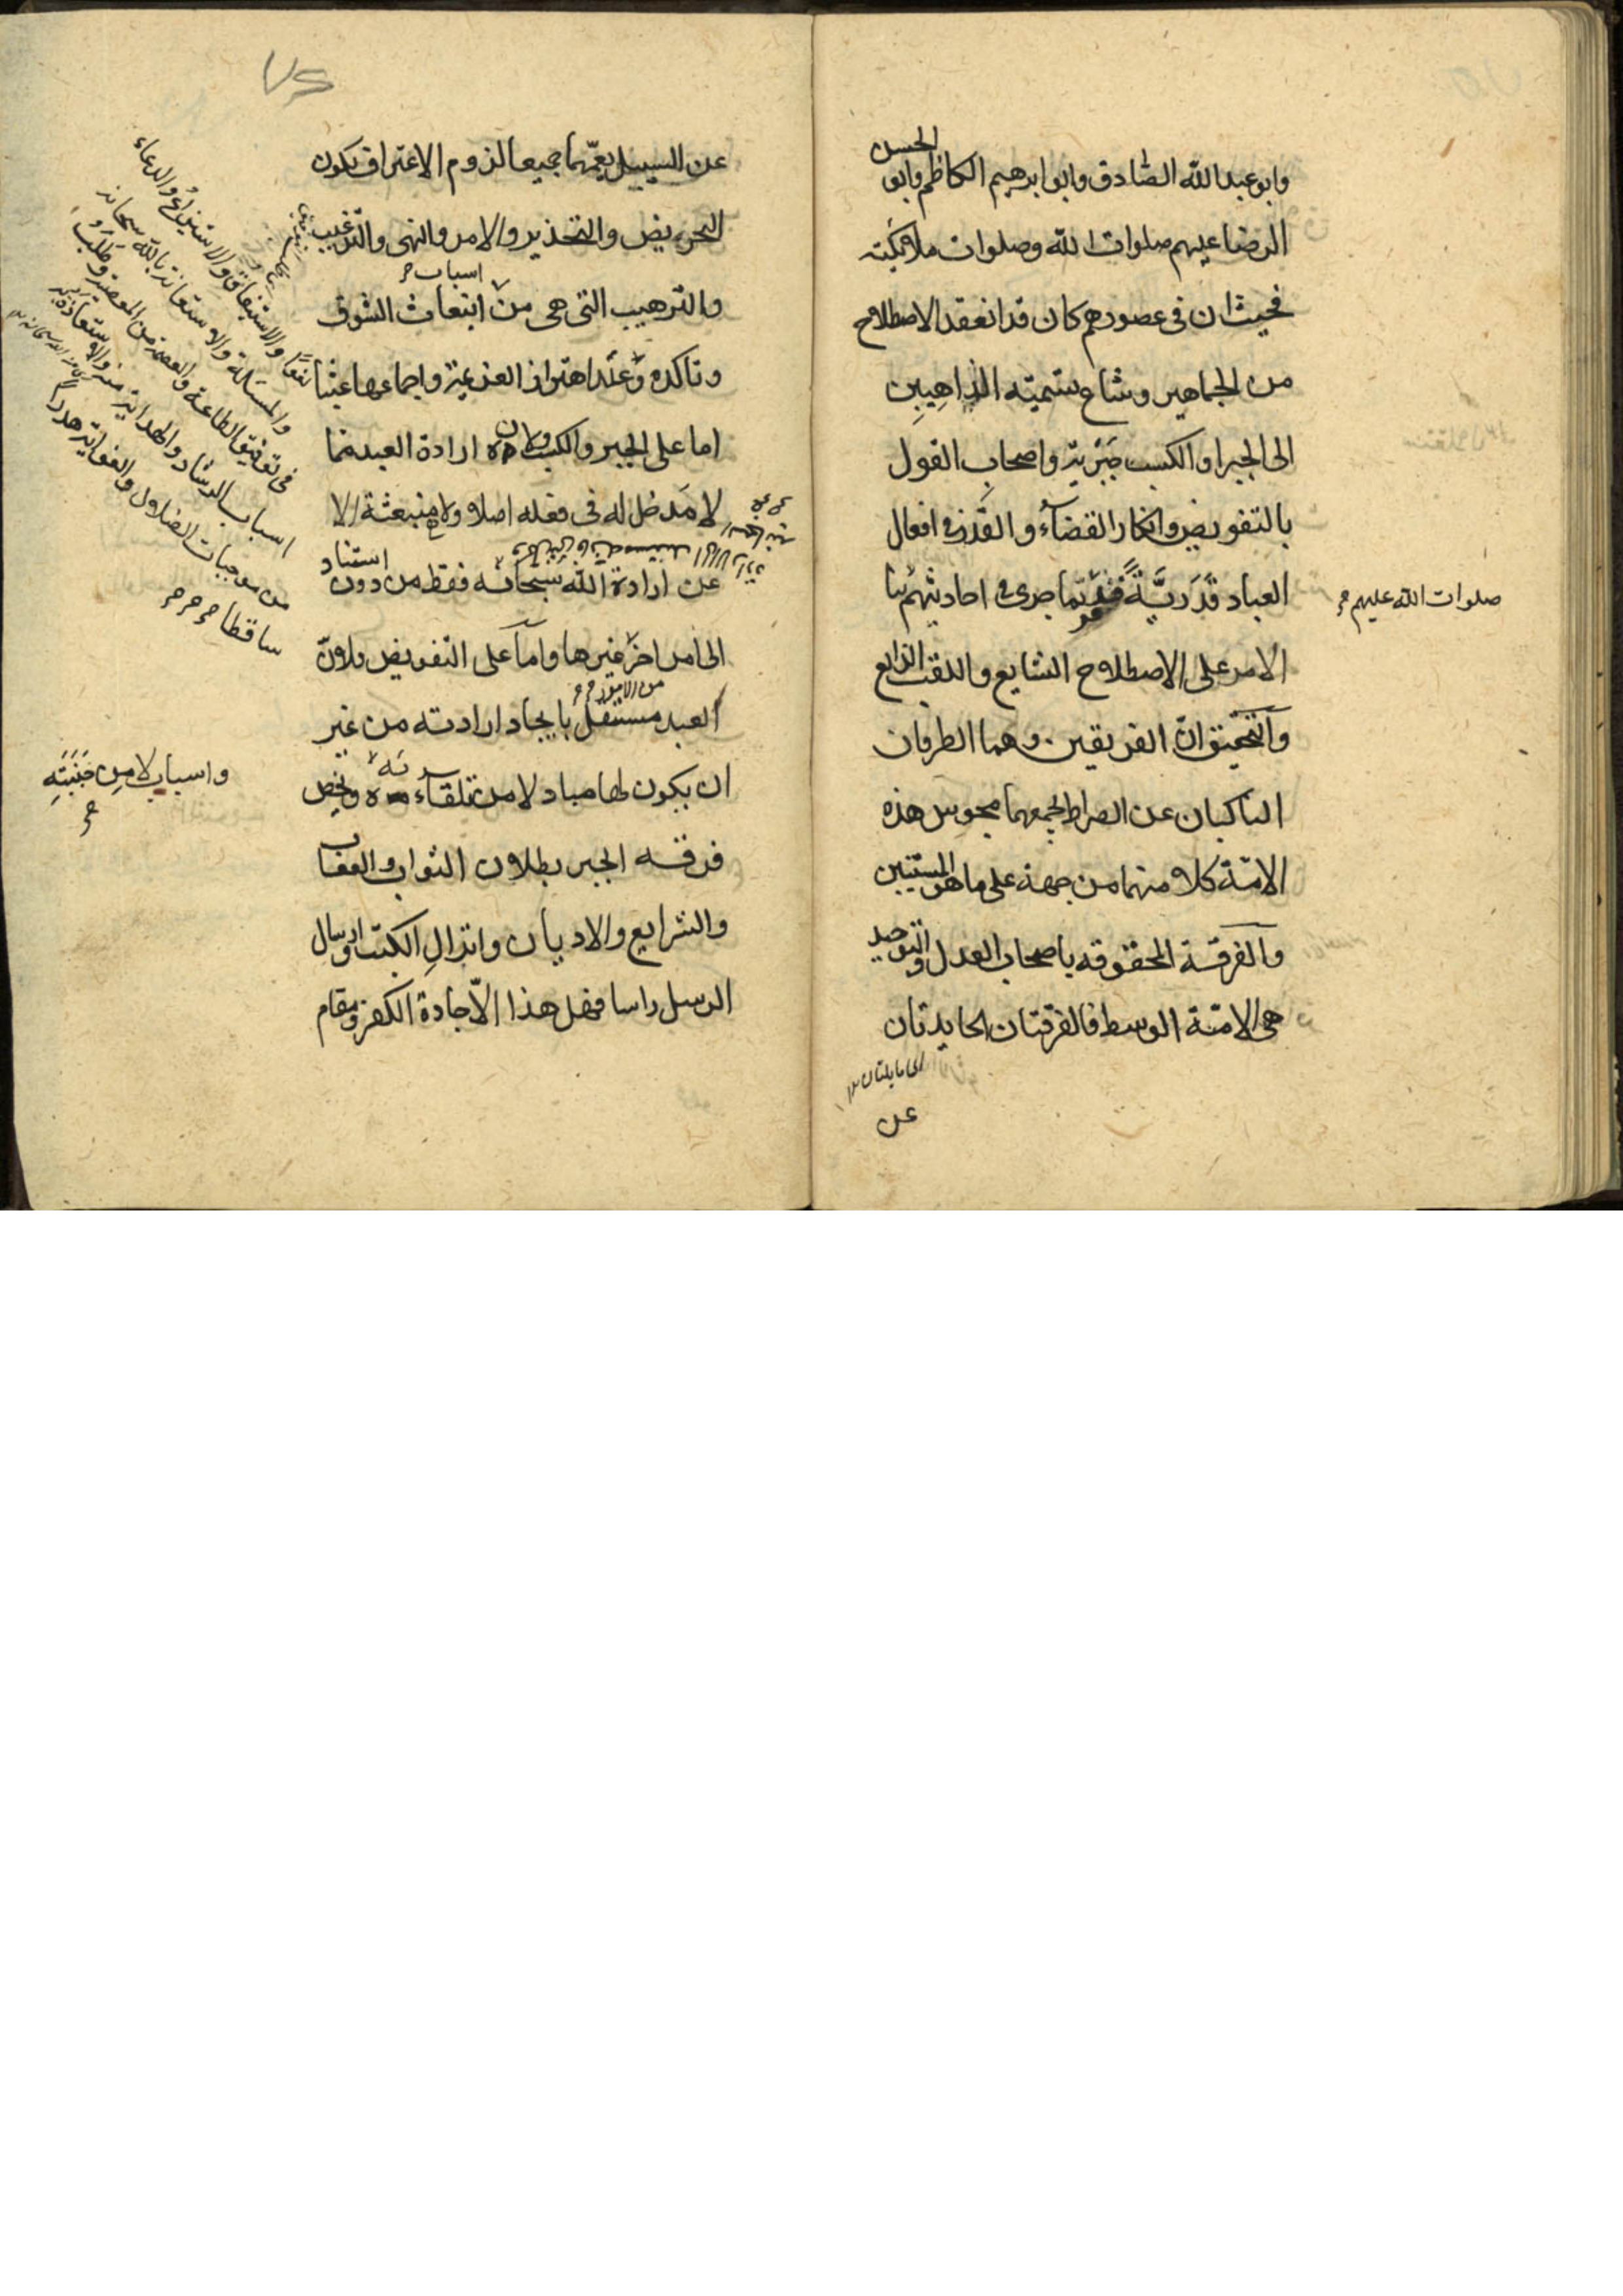 وابو عبد الله الصادق وابو ابرهيم الكاظم وابو الحسن
الرضا عليهم صلوات الله وصلوات ملائكته
فحيث ان فى عصورهم كان قد انعقد الاصطلاح
من الجماهير وشاع تسميته الذاهبين
الى الجبر او الكسب جَبْريّة واصحاب القول
بالتفويض وانكار القضآء والقَدَر فى افعال
العباد قَدَريَّةً جرى فى احاديثهم
صلوات الله عليهم
الامر على الاصطلاح الشايع واللقب الذايع
والتحقيق انّ الفريقين وهما الطرفان
الناكبان عن الصراط لجمعهما مجوس هذه
الامّة كلا منهما من جهة على ما هو المستبين
والفرقة المحقوقه باصحاب العدل والتوحيد
هى الامّة الوسط فالفرقتان الحايدتان
عن
عن السبيل يعمّهما جميعا لزوم الاعتراف بكون
التحريض والتحذير والامر والنهى والترغيب
والترهيب التى هى من اسباب انبعاث الشوق
وتاكده وعند اهتزاز العزيمة واجماعها عبثا
اما على الجبر والكسب ولان ارادة العبد مما
لا مَدخل له فى فعله اصلا ولا منبعثة الا
عن ارادة الله سبحانه فقط من دون استناد
الى امر اخر غيرها واما على التفويض ولانّ
من الامور
العبد مستقل بايجاد ارادته من غير
ان يكون لها مباد لا من تلقاء ويخص
واسباب لا مِن جَنَبَتِهِ
فرقه الجبر بطلان الثواب والعقاب
والشرايع والاديان وانزالِ الكتب وارسال
الرسل راسا فهل هذا الّا جادة الكفر ومقام
نفعًا والاستيفاق والاستيزاع والدعاء
والمسئلة والاستعانة بالله سبحانه
فى توفيق الطاعة والعصمة من المعصية وطلَب
اسباب الرشاد والهداية منه والاستعاذة به
من موجبات الضلال والغواية هدرا
ساقطا